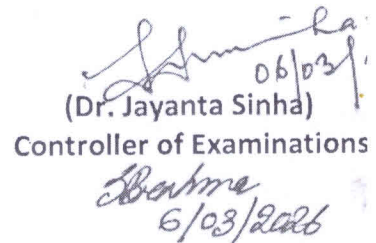 06/03/
(Dr. Jayanta Sinha)
Controller of Examinations
6/03/2026